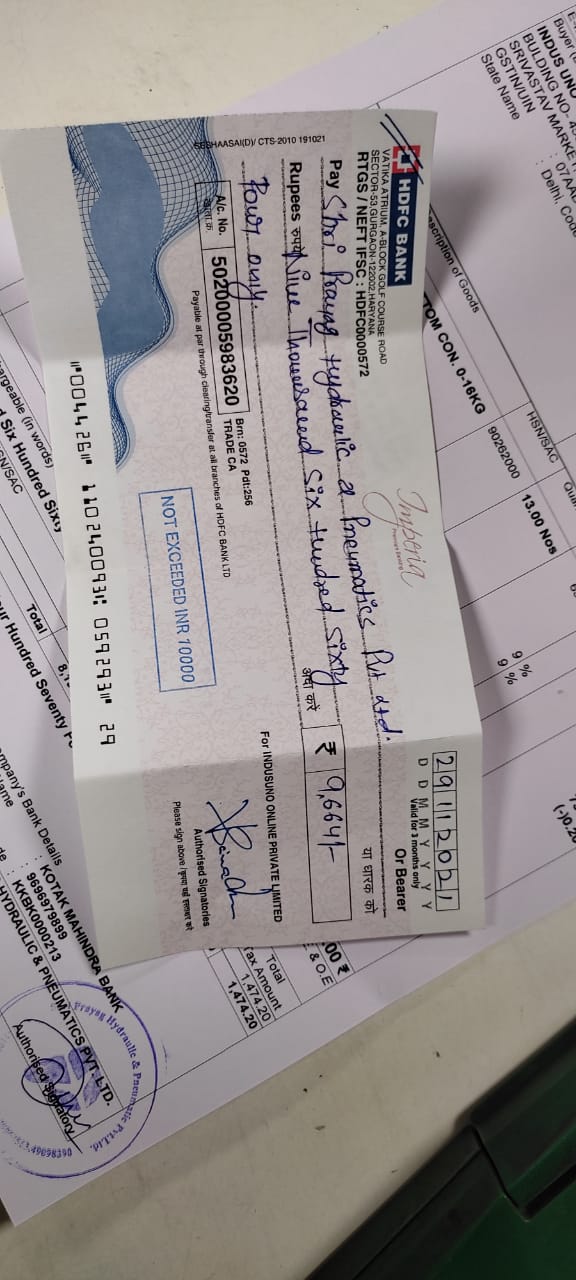 HDFC BANK
VATIKA ATRIUM, A-BLOCK GOLF COURSE ROAD
SECTOR-53, GURGAON-122002, HARYANA
RTGS / NEFT IFSC : HDFC0000572
Imperia
29112021
D D M M Y Y Y Y
Valid for 3 months only
Pay Shri Prayag Hydraulic & Pneumatics Pvt Ltd.
Or Bearer
या धारक को
Rupees रुपये Nine Thousand Six Hundred Sixty
अदा करें
Four only.
₹ 9,664/-
A/c. No. 50200005983620
Brn: 0572 Pdt:256
TRADE CA
Payable at par through clearing/transfer at all branches of HDFC BANK LTD
NOT EXCEEDED INR 10000
For INDUSUNO ONLINE PRIVATE LIMITED
Authorised Signatories
Please sign above
SESHAASAI(D)/ CTS-2010 191021
⑈004426⑈ 110240093⑆ 059293⑈ 29
Buyer
INDUS UNO
SRIVASTAV MARKE
GSTIN/UIN : 07AA
State Name : Delhi, Code
scription of Goods
HSN/SAC
TOM CON. 0-16KG
90262000
13.00 Nos
9 %
9 %
.00 ₹
& O.E
Total
Tax Amount
1,474.20
1,474.20
argeable (in words)
d Six Hundred Sixty
SN/SAC
Total
ur Hundred Seventy
mpany's Bank Details
: KOTAK MAHINDRA BANK
: 9696979899
: KKBK0000213
HYDRAULIC & PNEUMATICS PVT. LTD.
Authorised Signatory
Prayag Hydraulic & Pneumatic Pvt.Ltd.